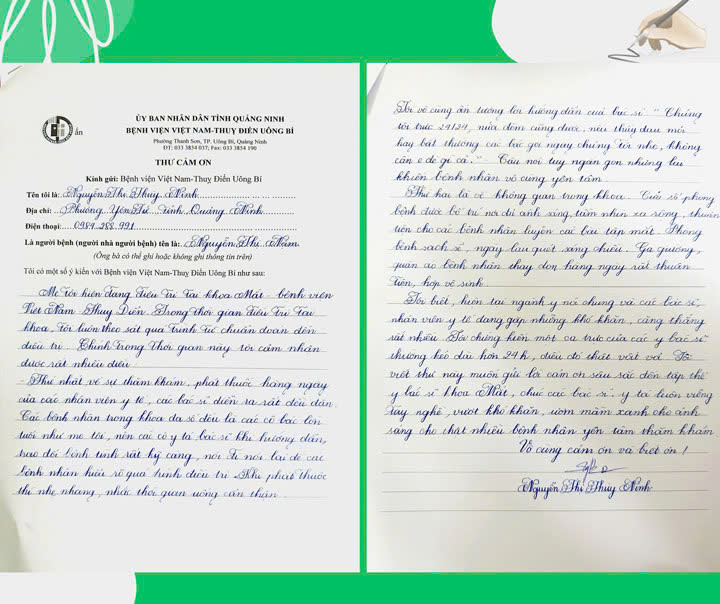 ỦY BAN NHÂN DÂN TỈNH QUẢNG NINH
BỆNH VIỆN VIỆT NAM-THỤY ĐIỂN UÔNG BÍ
Phường Thanh Sơn, TP. Uông Bí, Quảng Ninh
ĐT: 033 3854 037; Fax: 033 3854 190
THƯ CẢM ƠN
Kính gửi: Bệnh viện Việt Nam-Thuỵ Điển Uông Bí
Tên tôi là: Nguyễn Thị Thuỳ Ninh
Địa chỉ: Phường Yên Tử tỉnh Quảng Ninh
Điện thoại: 0984.288.991
Là người bệnh (người nhà người bệnh) tên là: Nguyễn Thị Năm
(Ông bà có thể ghi hoặc không ghi thông tin trên)
Tôi có một số ý kiến với Bệnh viện Việt Nam-Thuỵ Điển Uông Bí như sau:
Mẹ tôi hiện đang điều trị tại khoa Mắt - bệnh viện
Việt Nam Thuỵ Điển. Trong thời gian điều trị tại
khoa, tôi luôn theo sát quá trình từ chuẩn đoán đến
điều trị. Chính trong thời gian này tôi cảm nhận
được rất nhiều điều
- Thứ nhất về sự thăm khám, phát thuốc hàng ngày
của các nhân viên y tế, các bác sĩ diễn ra rất đều đặn.
Các bệnh nhân trong khoa đa số đều là các cô bác lớn
tuổi như mẹ tôi, nên các cô y tá bác sĩ khi hướng dẫn,
trao đổi bệnh tình rất kỹ càng, nói đi nói lại để các
bệnh nhân hiểu rõ quá trình điều trị. Khi phát thuốc
thì nhẹ nhàng, nhắc thời gian uống cẩn thận.
Tôi vô cùng ấn tượng lời hướng dẫn của bác sĩ " Chúng
tôi trực 24/24, nửa đêm cũng được, nếu thấy đau mỏi
hay bất thường các bác gọi ngay chúng tôi nhé, không
cần e dè gì cả." Câu nói tuy ngắn gọn nhưng lại
khiến bệnh nhân vô cùng yên tâm.
Thứ hai là về không gian trong khoa. Cửa sổ phòng
bệnh được bố trí nơi đủ ánh sáng, tầm nhìn xa rộng, thuận
tiện cho các bệnh nhân luyện các bài tập mắt. Phòng
bệnh sạch sẽ, ngày lau quét sáng chiều. Ga giường,
quần áo bệnh nhân thay dọn hàng ngày rất thuận
tiện, hợp vệ sinh
Tôi biết, hiện tại ngành y nói chung và các bác sĩ,
nhân viên y tế đang gặp những khó khăn, căng thẳng
rất nhiều. Tôi chứng kiến một ca trực của các y bác sĩ
thường kéo dài hơn 24h, điều đó thật vất vả. Tôi
viết thư này muốn gửi lời cảm ơn sâu sắc đến tập thể
y bác sĩ khoa Mắt, chúc các bác sĩ, y tá luôn vững
tay nghề, vượt khó khăn, ươm mầm xanh cho ánh
sáng cho thật nhiều bệnh nhân yên tâm thăm khám
Vô cùng cảm ơn và biết ơn!
Nguyễn Thị Thuỳ Ninh